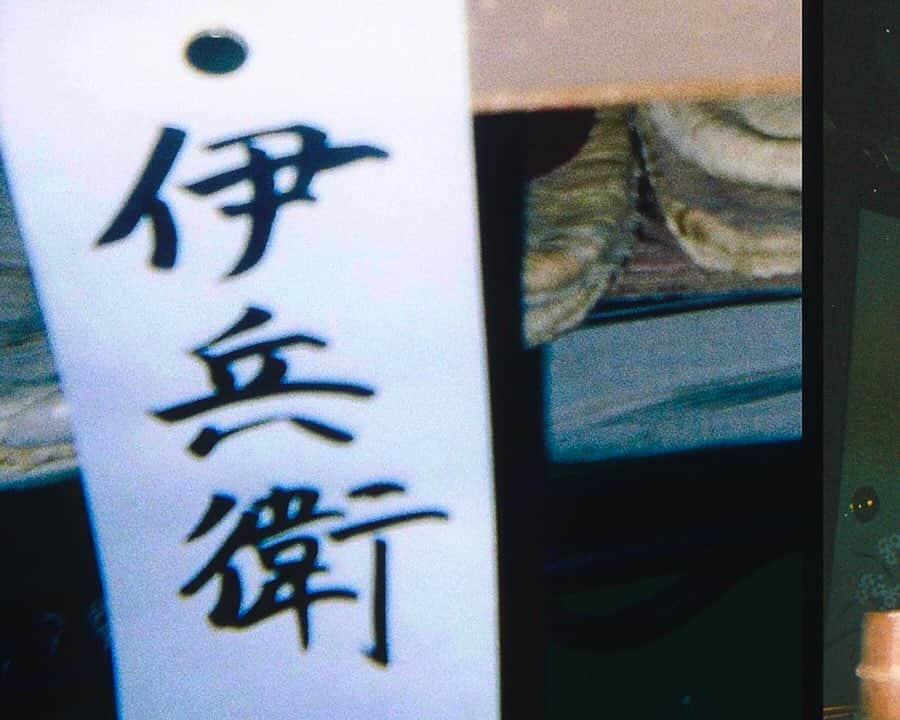 伊兵衛